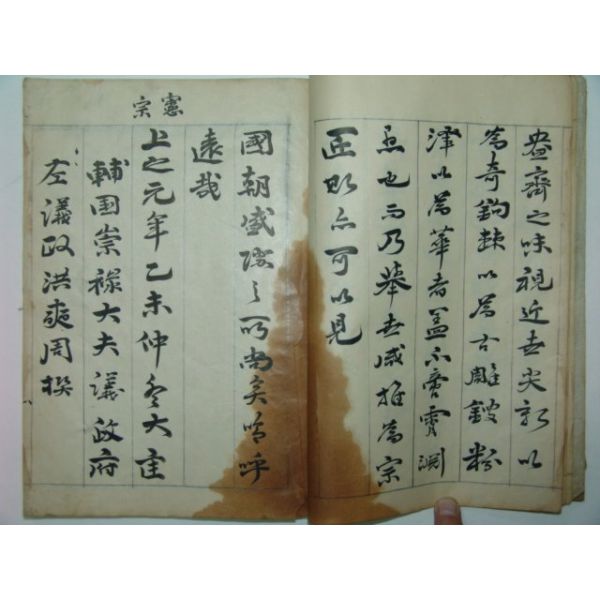 盎齊之味視近世尖新以
為奇鉤棘以為古雕鎪粉
澤以為華者盖不啻霄淵
也而乃舉世咸推為宗
匠斯亦可以見
國朝盛際之所尚矣嗚呼
遠哉
憲宗
上之元年乙未仲冬大匡
輔国崇祿大夫議政府
左議政洪奭周撰